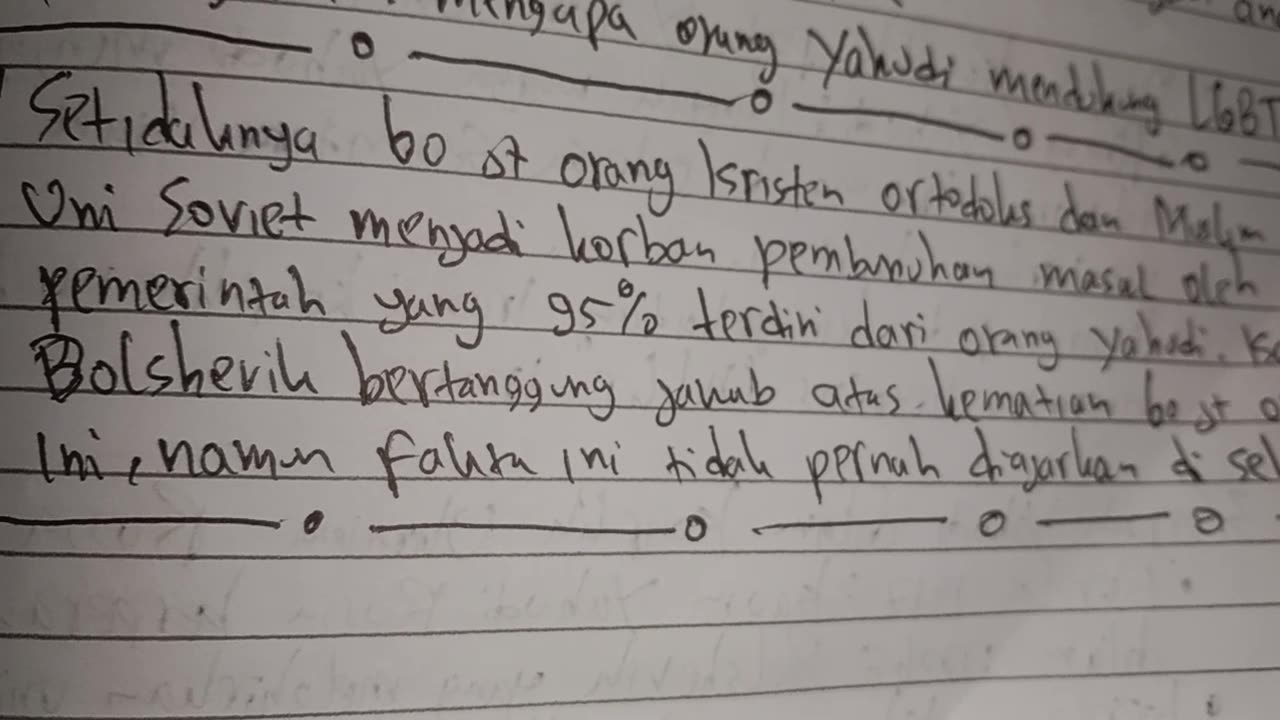 mengapa orang Yahudi mendukung LGBT
Setidaknya 60 Jt orang Kristen ortodoks dan Muslim
Uni Soviet menjadi korban pembunuhan masal oleh
pemerintah yang 95% terdiri dari orang yahudi.
Bolshevik bertanggung jawab atas kematian 60 Jt
Ini, namun fakta ini tidak pernah diajarkan di sel